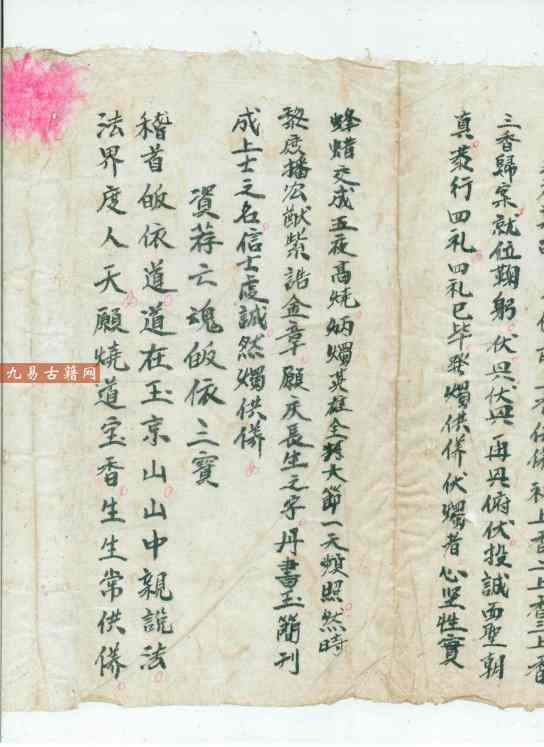 上香二上香三上香
三香歸案就位鞠躬伏興伏興再興俯伏投誠面聖朝
真恭行四礼四礼已毕發燭供侢伏燭者心坚性實
蜂蜡交成五夜高烧炳燭英雄全大節一天頫照然時
黎庶播宏猷紫誥金章願庆長生之字丹書玉簡刊
成上士之名信士虔誠然燭供侢
資荐亡魂皈依三寶
稽首皈依道道在玉京山山中親說法
法界度人天願燒道宝香生生常供侢
九易古籍网